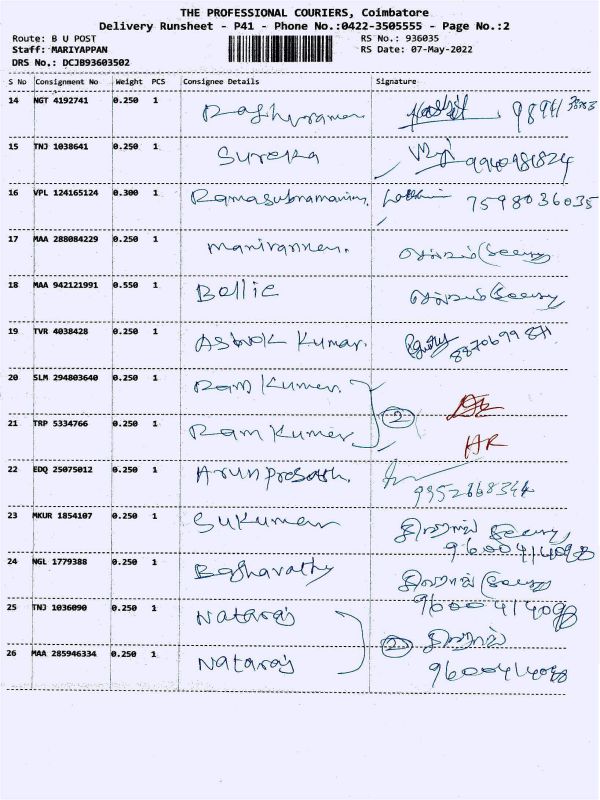 THE PROFESSIONAL COURIERS, Coimbatore
Delivery Runsheet - P41 - Phone No.:0422-3505555 - Page No.:2
Route: B U POST
RS No.: 936035
Staff: MARIYAPPAN
RS Date: 07-May-2022
DRS No.: DCJB93603502
S No Consignment No Weight PCS Consignee Details Signature
14 NGT 4192741 0.250 1 98941
15 TNJ 1038641 0.250 1 Sureka 9940981824
16 VPL 124165124 0.300 1 Ramasubramanium. 7598036035
17 MAA 288084229 0.250 1 Manivannan.
18 MAA 942121991 0.550 1 Bellie
19 TVR 4038428 0.250 1 Ashok Kumar. 8870699871
20 SLM 294803640 0.250 1 Ram Kumar.
2
21 TRP 5334766 0.250 1 Ram Kumar
HR
22 EDQ 25075012 0.250 1 Arun Prasath. 9952668344
23 MKUR 1854107 0.250 1 Sukumar
9600414098
24 NGL 1779388 0.250 1 Baghavathy
9600414098
25 TNJ 1036090 0.250 1 Nataraj
2
26 MAA 285946334 0.250 1 Nataraj 9600414098